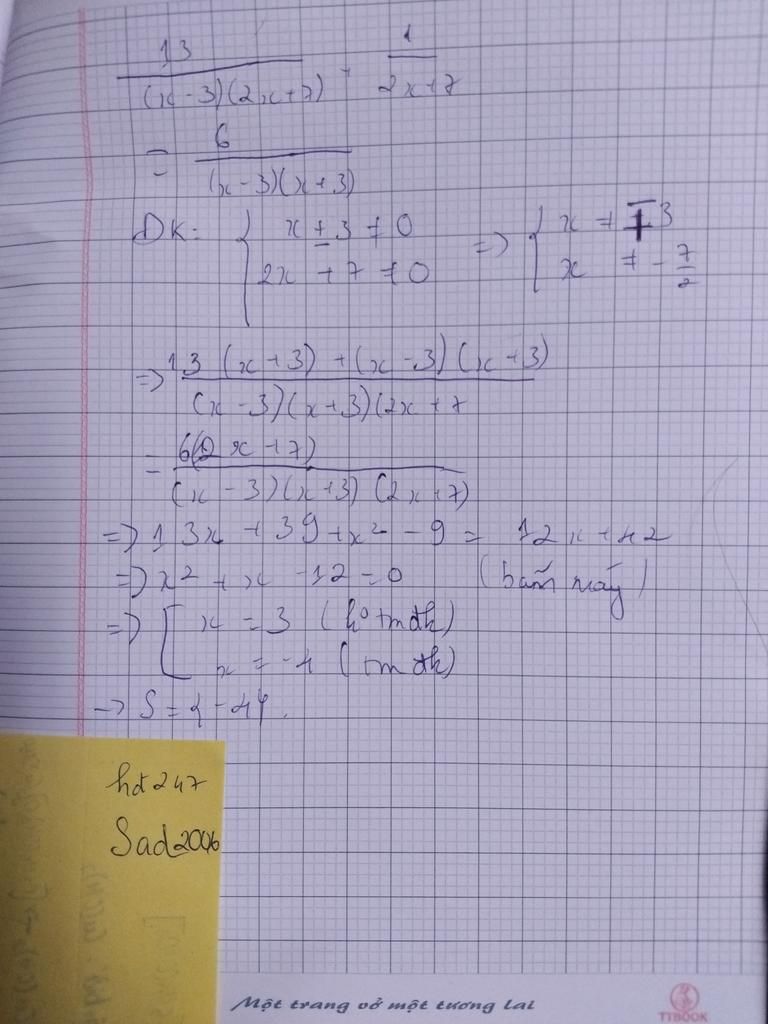 13/((x-3)(2x+7)) + 1/(2x+7)
= 6/((x-3)(x+3))
ĐK: { x ± 3 ≠ 0 => { x ≠ ∓3
2x + 7 ≠ 0 x ≠ -7/2
=> (13 (x+3) + (x-3)(x+3))/((x-3)(x+3)(2x+7
= 6(2x+7)/((x-3)(x+3)(2x+7))
=> 13x + 39 + x² - 9 = 12x + 42
=> x² + x - 12 = 0 (bấm máy)
=> [ x = 3 (ko tmđk)
x = -4 (tmđk)
-> S = {-4}.
hd247
Sad2006
Một trang vở một tương lai
TTBOOK